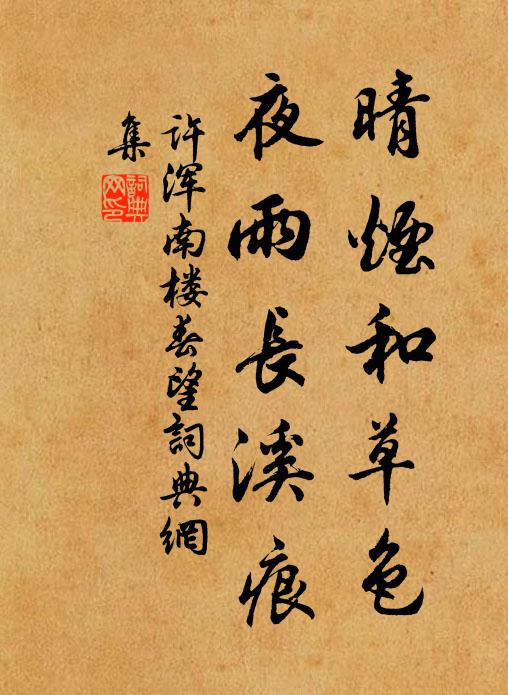 晴煙和草色
夜雨長溪痕
许浑南楼春望詞典網
集
詞典网印